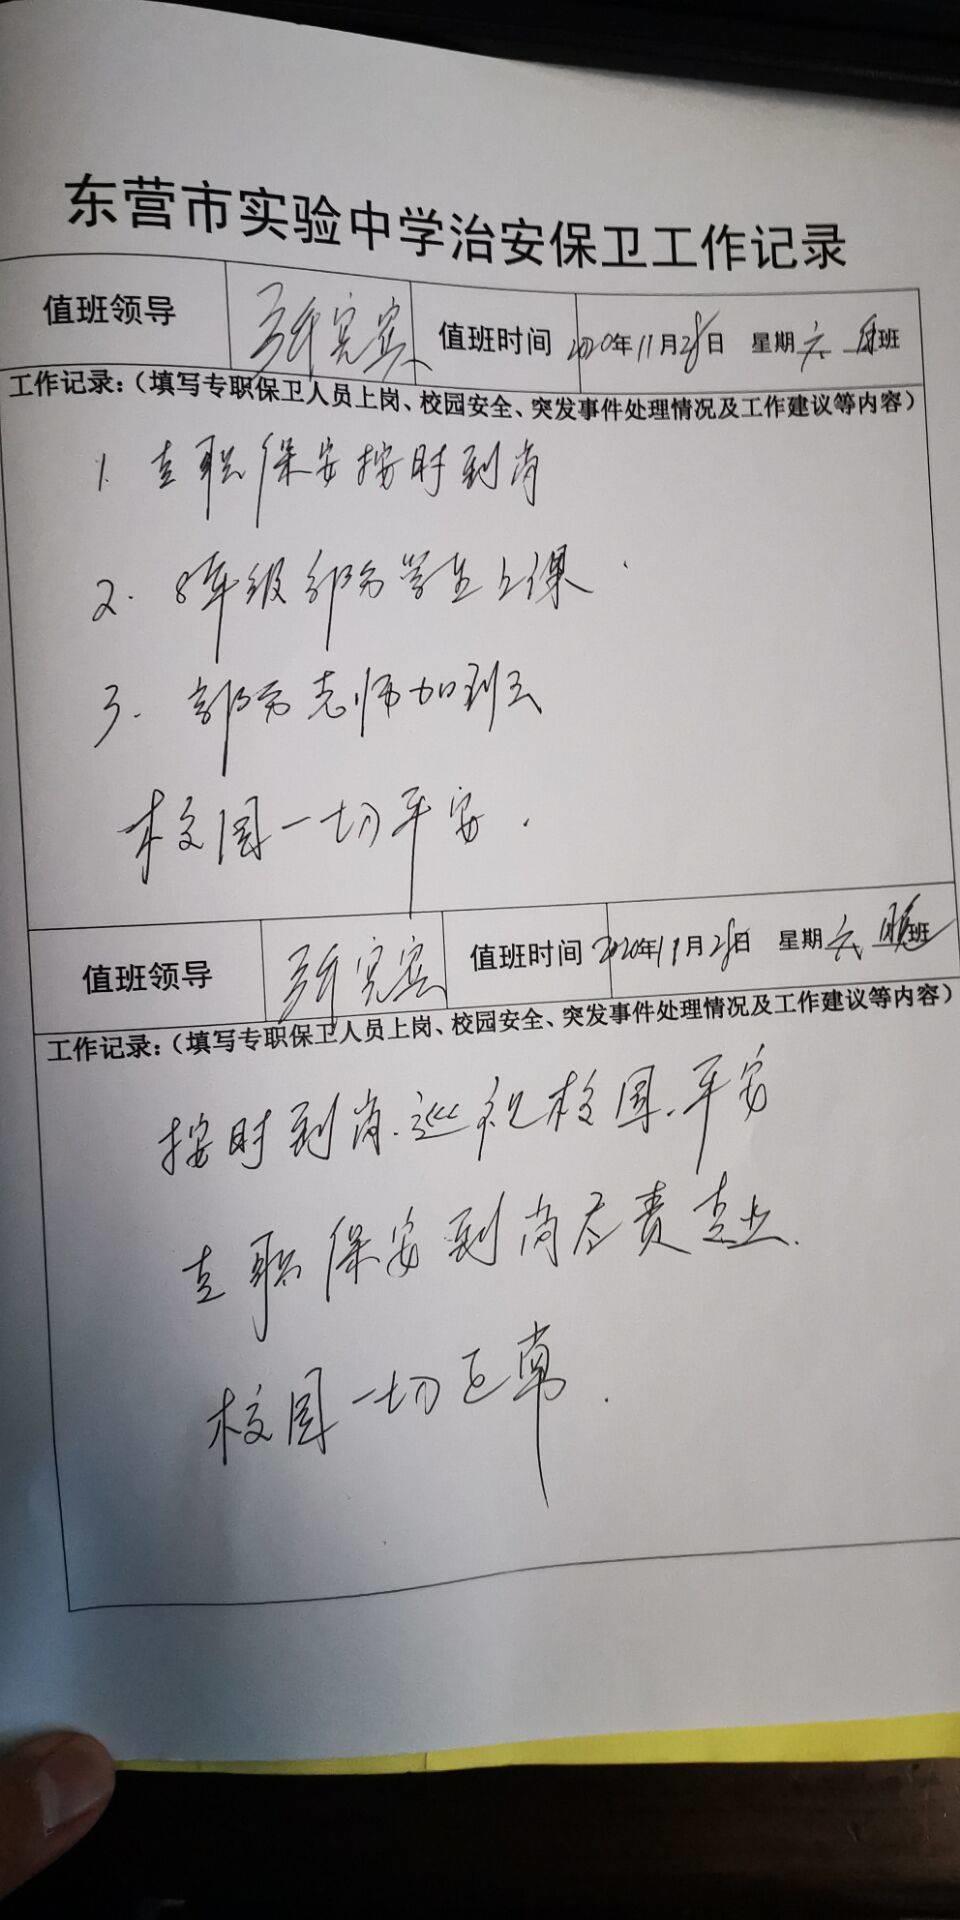 东营市实验中学治安保卫工作记录
值班领导 值班时间 2020年11月28日 星期六 白班
工作记录：（填写专职保卫人员上岗、校园安全、突发事件处理情况及工作建议等内容）
1. 专职保安按时到岗
2. 8年级部分学生上课.
3. 部分老师加班
校园一切平安.
值班领导 值班时间 2020年11月28日 星期六 晚班
工作记录：（填写专职保卫人员上岗、校园安全、突发事件处理情况及工作建议等内容）
按时到岗.巡视校园.平安
专职保安到岗尽责
校园一切正常.